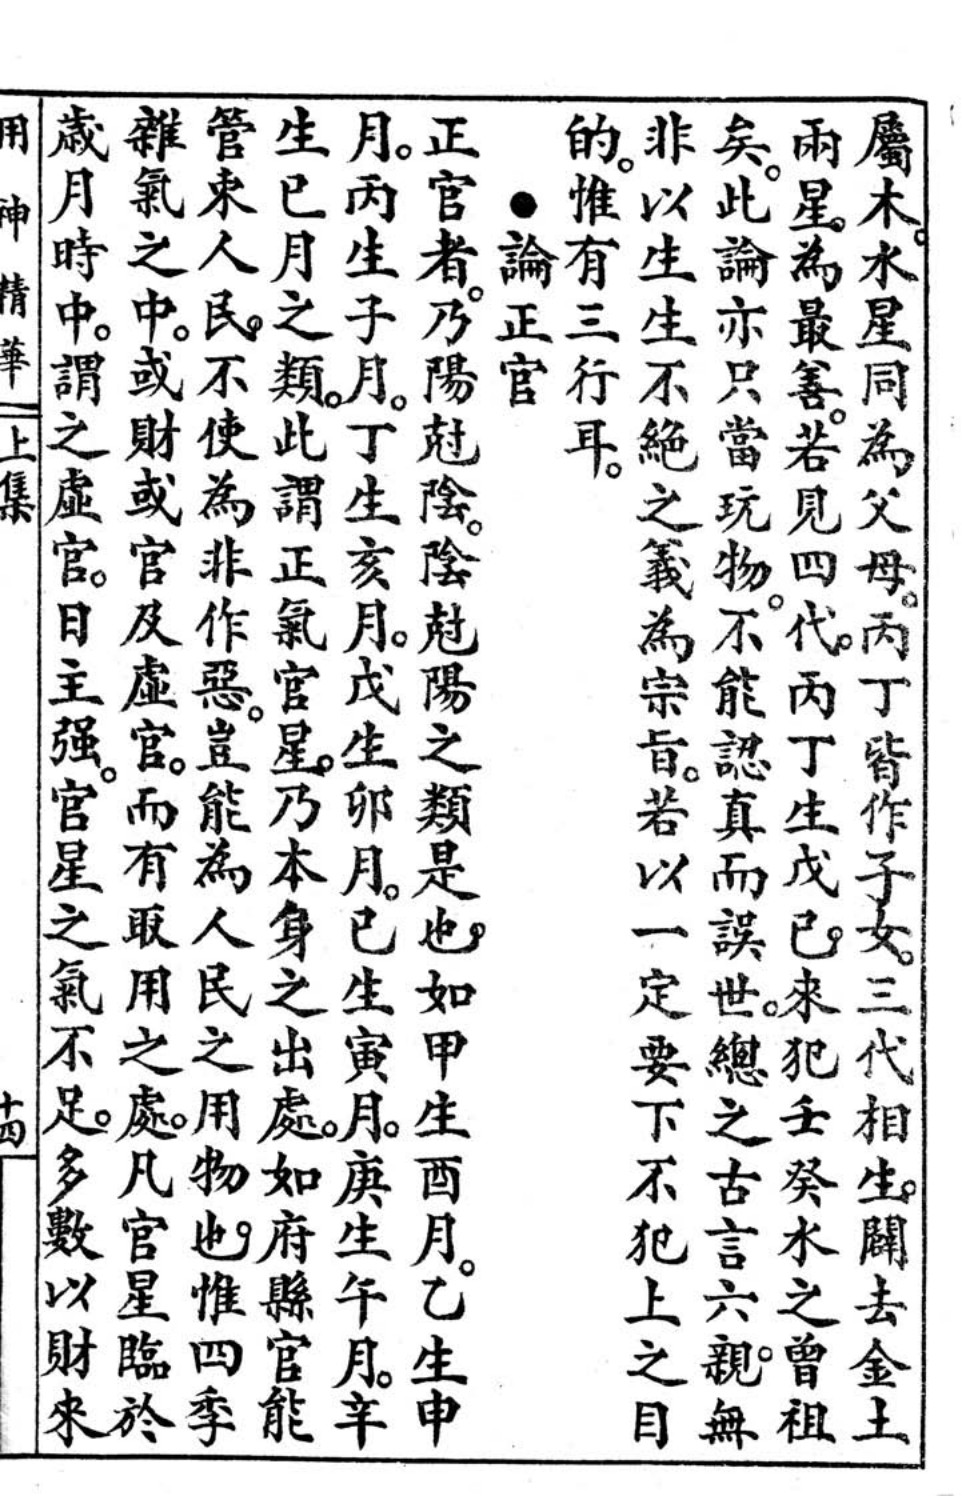 屬木。水星同為父母。丙丁皆作子女。三代相生。闢去金土
兩星。為最善。若見四代。丙丁生戊己。來犯壬癸水之曾祖
矣。此論亦只當玩物。不能認真而誤世。總之古言六親。無
非以生生不絕之義為宗旨。若以一定要下不犯上之目
的。惟有三行耳。
●論正官
正官者。乃陽尅陰。陰尅陽之類是也。如甲生酉月。乙生申
月。丙生子月。丁生亥月。戊生卯月。己生寅月。庚生午月。辛
生巳月之類。此謂正氣官星。乃本身之出處。如府縣官能
管束人民。不使為非作惡。豈能為人民之用物也。惟四季
雜氣之中。或財或官及虛官。而有取用之處。凡官星臨於
歲月時中。謂之虛官。日主强。官星之氣不足。多數以財來
用神精華
上集
十四